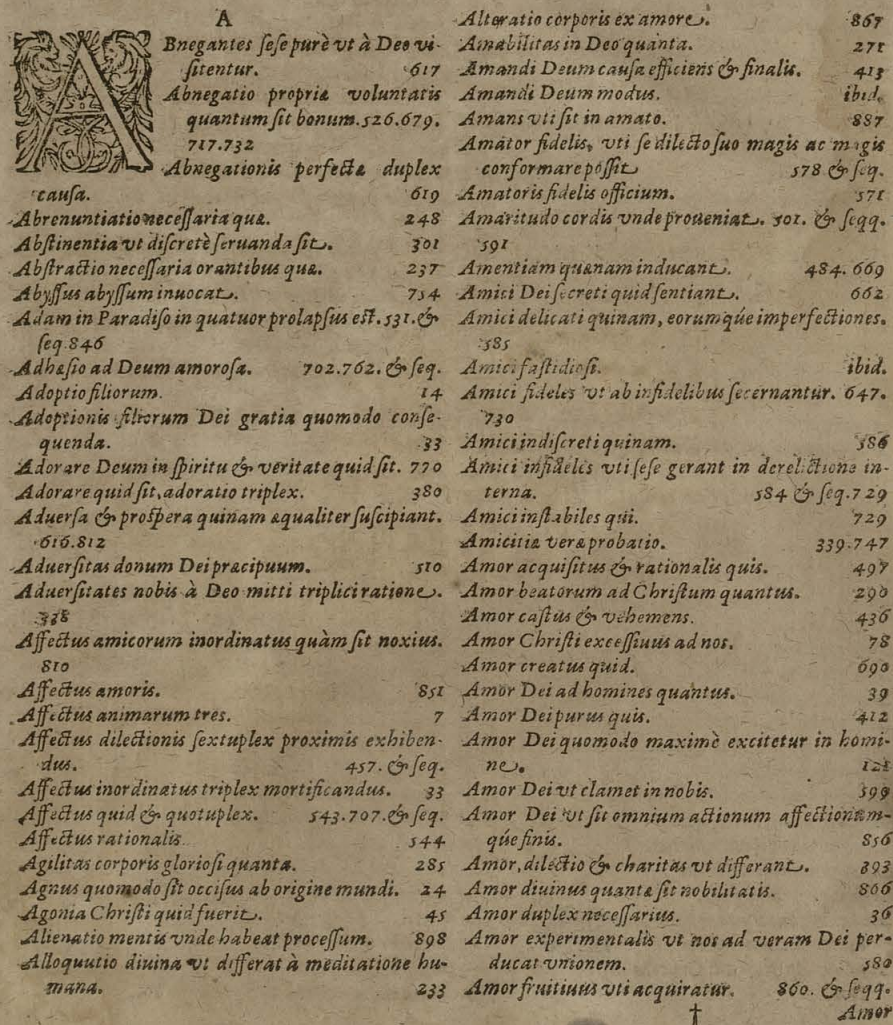 A
ABnegantes ſeſe purè vt à Deo viſitentur. 617
Abnegatio propriæ voluntatis
quantum ſit bonum. 526. 679.
717. 732
Abnegationis perfectæ duplex
cauſa. 619
Abrenuntiatio neceſſaria quæ. 248
Abſtinentia vt diſcretè ſeruanda ſit. 301
Abſtractio neceſſaria orantibus quæ. 237
Abyſſus abyſſum inuocat. 754
Adam in Paradiſo in quatuor prolapſus eſt. 531. &
ſeq. 846
Adhæſio ad Deum amoroſa. 702. 762. & ſeq.
Adoptio filiorum. 14
Adoptionis filiorum Dei gratia quomodo conſe-
quenda. 33
Adorare Deum in ſpiritu & veritate quid ſit. 770
Adorare quid ſit, adoratio triplex. 380
Aduerſa & proſpera quinam æqualiter ſuſcipiant.
616. 812
Aduerſitas donum Dei præcipuum. 510
Aduerſitates nobis à Deo mitti triplici ratione.
338
Affectus amicorum inordinatus quàm ſit noxius.
810
Affectus amoris. 851
Affectus animarum tres. 7
Affectus dilectionis ſextuplex proximis exhiben-
dus. 457. & ſeq.
Affectus inordinatus triplex mortificandus. 33
Affectus quid & quotuplex. 543. 707. & ſeq.
Affectus rationalis. 544
Agilitas corporis glorioſi quanta. 285
Agnus quomodo ſit occiſus ab origine mundi. 24
Agonia Chriſti quid fuerit. 45
Alienatio mentis vnde habeat proceſſum. 898
Alloquutio diuina vt differat à meditatione hu-
mana. 233
Alteratio corporis ex amore. 867
Amabilitas in Deo quanta. 271
Amandi Deum cauſa efficiens & finalis. 413
Amandi Deum modus. ibid.
Amans vti ſit in amato. 887
Amator fidelis, vti ſe dilecto ſuo magis ac magis
conformare poſſit 578 & ſeq.
Amatoris fidelis officium. 571
Amaritudo cordis vnde proueniat. 501. & ſeqq.
591
Amentiam quænam inducant. 484. 669
Amici Dei ſecreti quid ſentiant. 662
Amici delicati quinam, eorumq́ue imperfectiones.
585
Amici faſtidioſi. ibid.
Amici fideles vt ab infidelibus ſecernantur. 647.
730
Amici indiſcreti quinam. 586
Amici infideles vti ſeſe gerant in derelictione in-
terna. 584 & ſeq. 729
Amici inſtabiles qui. 729
Amicitiæ veræ probatio. 339. 747
Amor acquiſitus & rationalis quis. 497
Amor beatorum ad Chriſtum quantus. 290
Amor caſtus & vehemens. 436
Amor Chriſti exceſſiuus ad nos. 78
Amor creatus quid. 690
Amor Dei ad homines quantus. 39
Amor Dei purus quis. 412
Amor Dei quomodo maximè excitetur in homi-
ne. 128
Amor Dei vt clamet in nobis. 399
Amor Dei vt ſit omnium actionum affectionum-
q́ue finis. 856
Amor, dilectio & charitas vt differant. 393
Amor diuinus quantæ ſit nobilitatis. 866
Amor duplex neceſſarius. 36
Amor experimentalis vt nos ad veram Dei per-
ducat vnionem. 580
Amor fruitiuus vti acquiratur. 860. & ſeqq.
† Amor